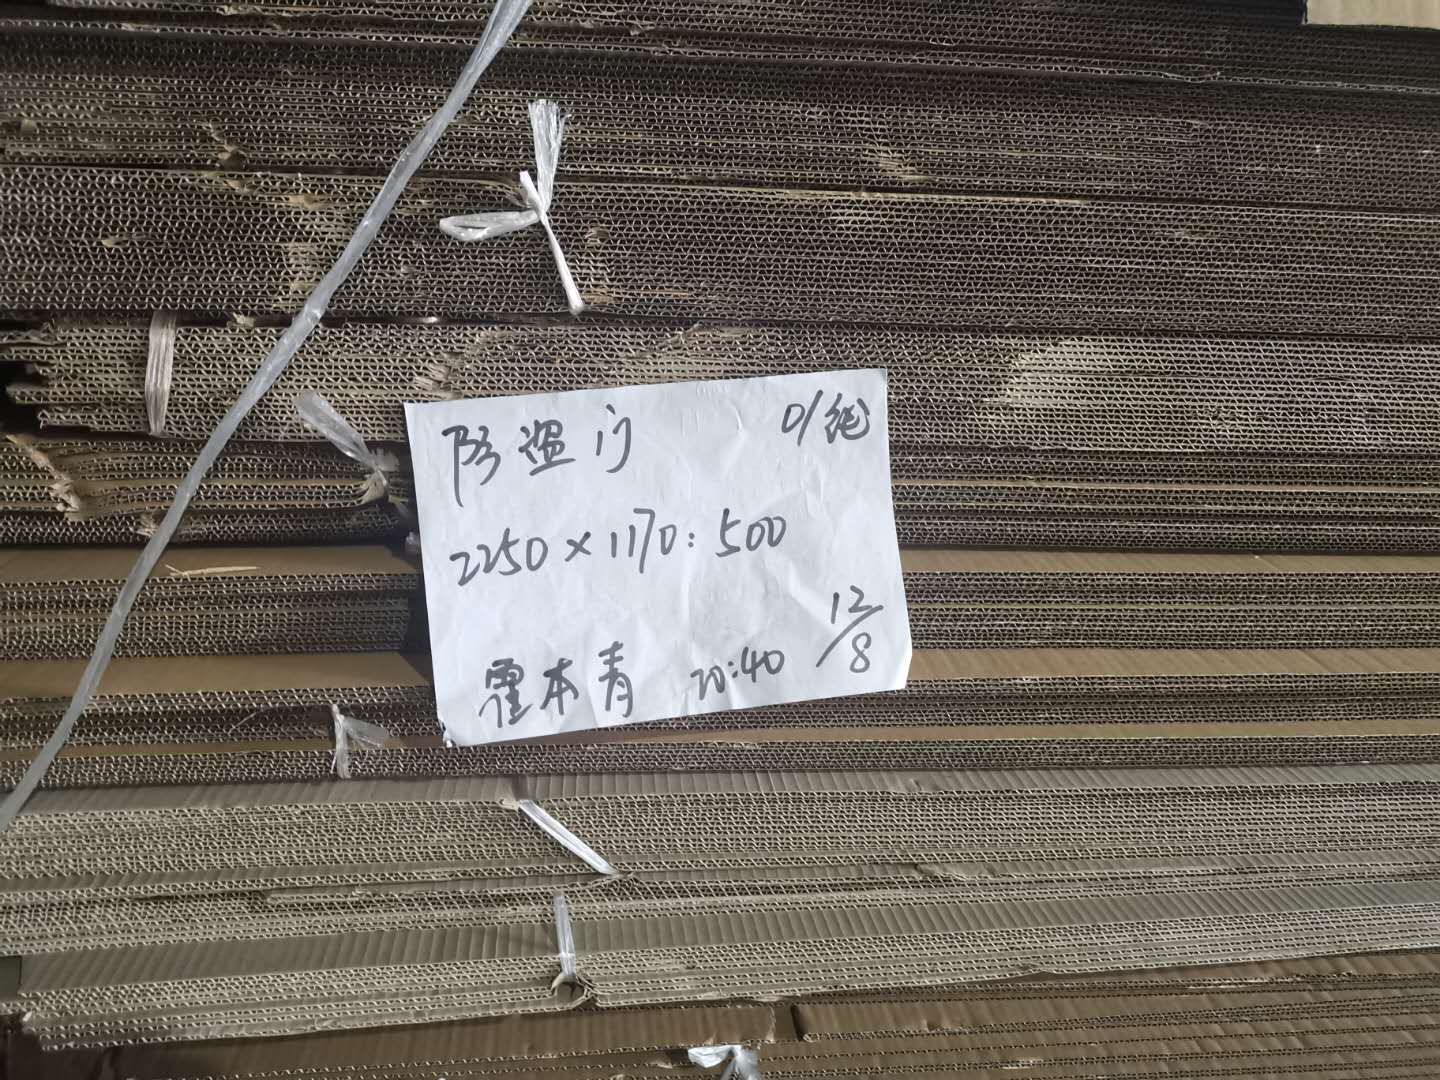 防盗门
2250×1170:500
霍本青 20:40 12/8